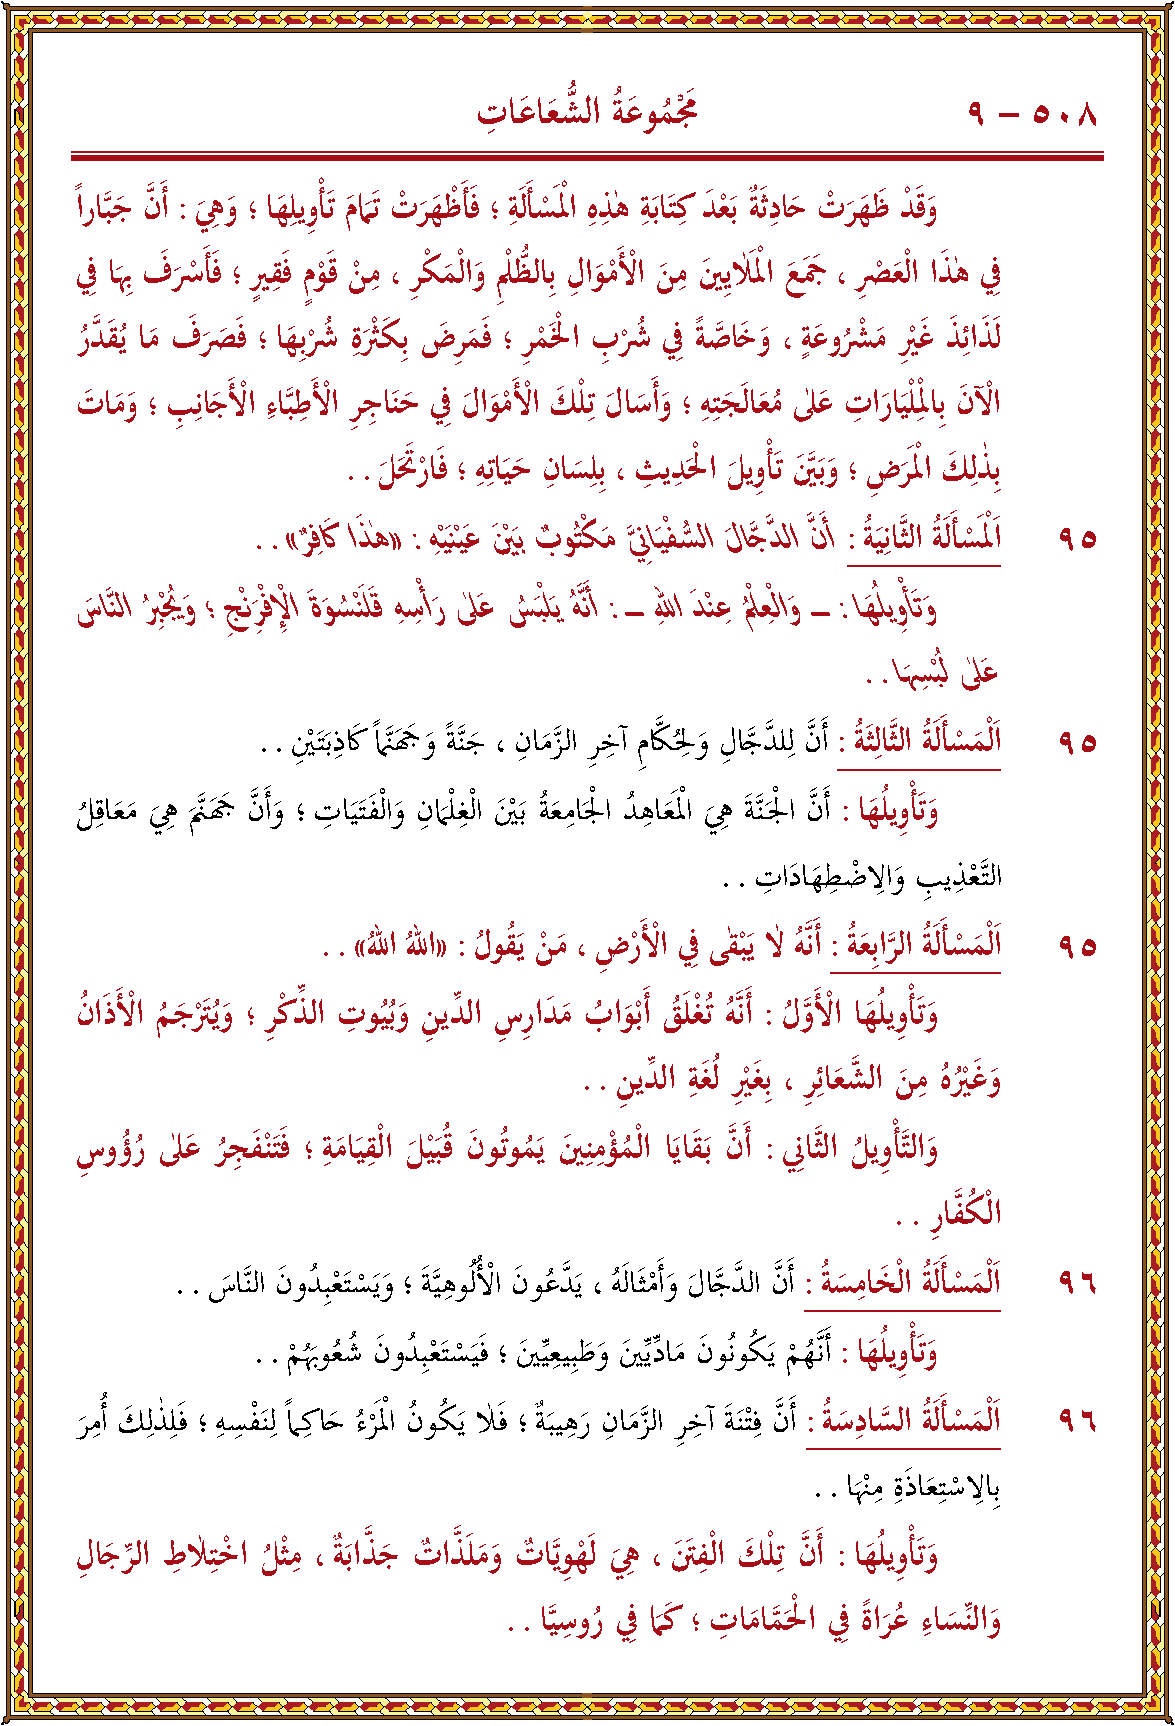 ٥٠٨ – ٩ مَجْمُوعَةُ الشُّعَاعَاتِ
وَقَدْ ظَهَرَتْ حَادِثَةٌ بَعْدَ كِتَابَةِ هٰذِهِ الْمَسْأَلَةِ ؛ فَأَظْهَرَتْ تَمَامَ تَأْوِيلِهَا ؛ وَهِيَ : أَنَّ جَبَّاراً
فِي هٰذَا الْعَصْرِ ، جَمَعَ الْمَلَايِينَ مِنَ الْأَمْوَالِ بِالظُّلْمِ وَالْمَكْرِ ، مِنْ قَوْمٍ فَقِيرٍ ؛ فَأَسْرَفَ بِهَا فِي
لَذَائِذَ غَيْرِ مَشْرُوعَةٍ ، وَخَاصَّةً فِي شُرْبِ الْخَمْرِ ؛ فَمَرِضَ بِكَثْرَةِ شُرْبِهَا ؛ فَصَرَفَ مَا يُقَدَّرُ
الْآنَ بِالْمِلْيَارَاتِ عَلٰى مُعَالَجَتِهِ ؛ وَأَسَالَ تِلْكَ الْأَمْوَالَ فِي حَنَاجِرِ الْأَطِبَّاءِ الْأَجَانِبِ ؛ وَمَاتَ
بِذٰلِكَ الْمَرَضِ ؛ وَبَيَّنَ تَأْوِيلَ الْحَدِيثِ ، بِلِسَانِ حَيَاتِهِ ؛ فَارْتَحَلَ . .
٩٥ اَلْمَسْأَلَةُ الثَّانِيَةُ : أَنَّ الدَّجَّالَ السُّفْيَانِيَّ مَكْتُوبٌ بَيْنَ عَيْنَيْهِ : «هٰذَا كَافِرٌ» . .
وَتَأْوِيلُهَا : – وَالْعِلْمُ عِنْدَ اللهِ – : أَنَّهُ يَلْبَسُ عَلٰى رَأْسِهِ قَلَنْسُوَةَ الْإِفْرَنْجِ ؛ وَيُجْبِرُ النَّاسَ
عَلٰى لُبْسِهَا . .
٩٥ اَلْمَسْأَلَةُ الثَّالِثَةُ : أَنَّ لِلدَّجَّالِ وَلِحُكَّامِ آخِرِ الزَّمَانِ ، جَنَّةً وَجَهَنَّماً كَاذِبَتَيْنِ . .
وَتَأْوِيلُهَا : أَنَّ الْجَنَّةَ هِيَ الْمَعَاهِدُ الْجَامِعَةُ بَيْنَ الْغِلْمَانِ وَالْفَتَيَاتِ ؛ وَأَنَّ جَهَنَّمَ هِيَ مَعَاقِلُ
التَّعْذِيبِ وَالِاضْطِهَادَاتِ . .
٩٥ اَلْمَسْأَلَةُ الرَّابِعَةُ : أَنَّهُ لَا يَبْقٰى فِي الْأَرْضِ ، مَنْ يَقُولُ : «اللهُ اللهُ» . .
وَتَأْوِيلُهَا الْأَوَّلُ : أَنَّهُ تُغْلَقُ أَبْوَابُ مَدَارِسِ الدِّينِ وَبُيُوتِ الذِّكْرِ ؛ وَيُتَرْجَمُ الْأَذَانُ
وَغَيْرُهُ مِنَ الشَّعَائِرِ ، بِغَيْرِ لُغَةِ الدِّينِ . .
وَالتَّأْوِيلُ الثَّانِي : أَنَّ بَقَايَا الْمُؤْمِنِينَ يَمُوتُونَ قُبَيْلَ الْقِيَامَةِ ؛ فَتَنْفَجِرُ عَلٰى رُؤُوسِ
الْكُفَّارِ . .
٩٦ اَلْمَسْأَلَةُ الْخَامِسَةُ : أَنَّ الدَّجَّالَ وَأَمْثَالَهُ ، يَدَّعُونَ الْأُلُوهِيَّةَ ؛ وَيَسْتَعْبِدُونَ النَّاسَ . .
وَتَأْوِيلُهَا : أَنَّهُمْ يَكُونُونَ مَادِّيِّينَ وَطَبِيعِيِّينَ ؛ فَيَسْتَعْبِدُونَ شُعُوبَهُمْ . .
٩٦ اَلْمَسْأَلَةُ السَّادِسَةُ : أَنَّ فِتْنَةَ آخِرِ الزَّمَانِ رَهِيبَةٌ ؛ فَلَا يَكُونُ الْمَرْءُ حَاكِماً لِنَفْسِهِ ؛ فَلِذٰلِكَ أُمِرَ
بِالِاسْتِعَاذَةِ مِنْهَا . .
وَتَأْوِيلُهَا : أَنَّ تِلْكَ الْفِتَنَ ، هِيَ لَهْوِيَّاتٌ وَمَلَذَّاتٌ جَذَّابَةٌ ، مِثْلُ اخْتِلَاطِ الرِّجَالِ
وَالنِّسَاءِ عُرَاةً فِي الْحَمَّامَاتِ ؛ كَمَا فِي رُوسِيَّا . .